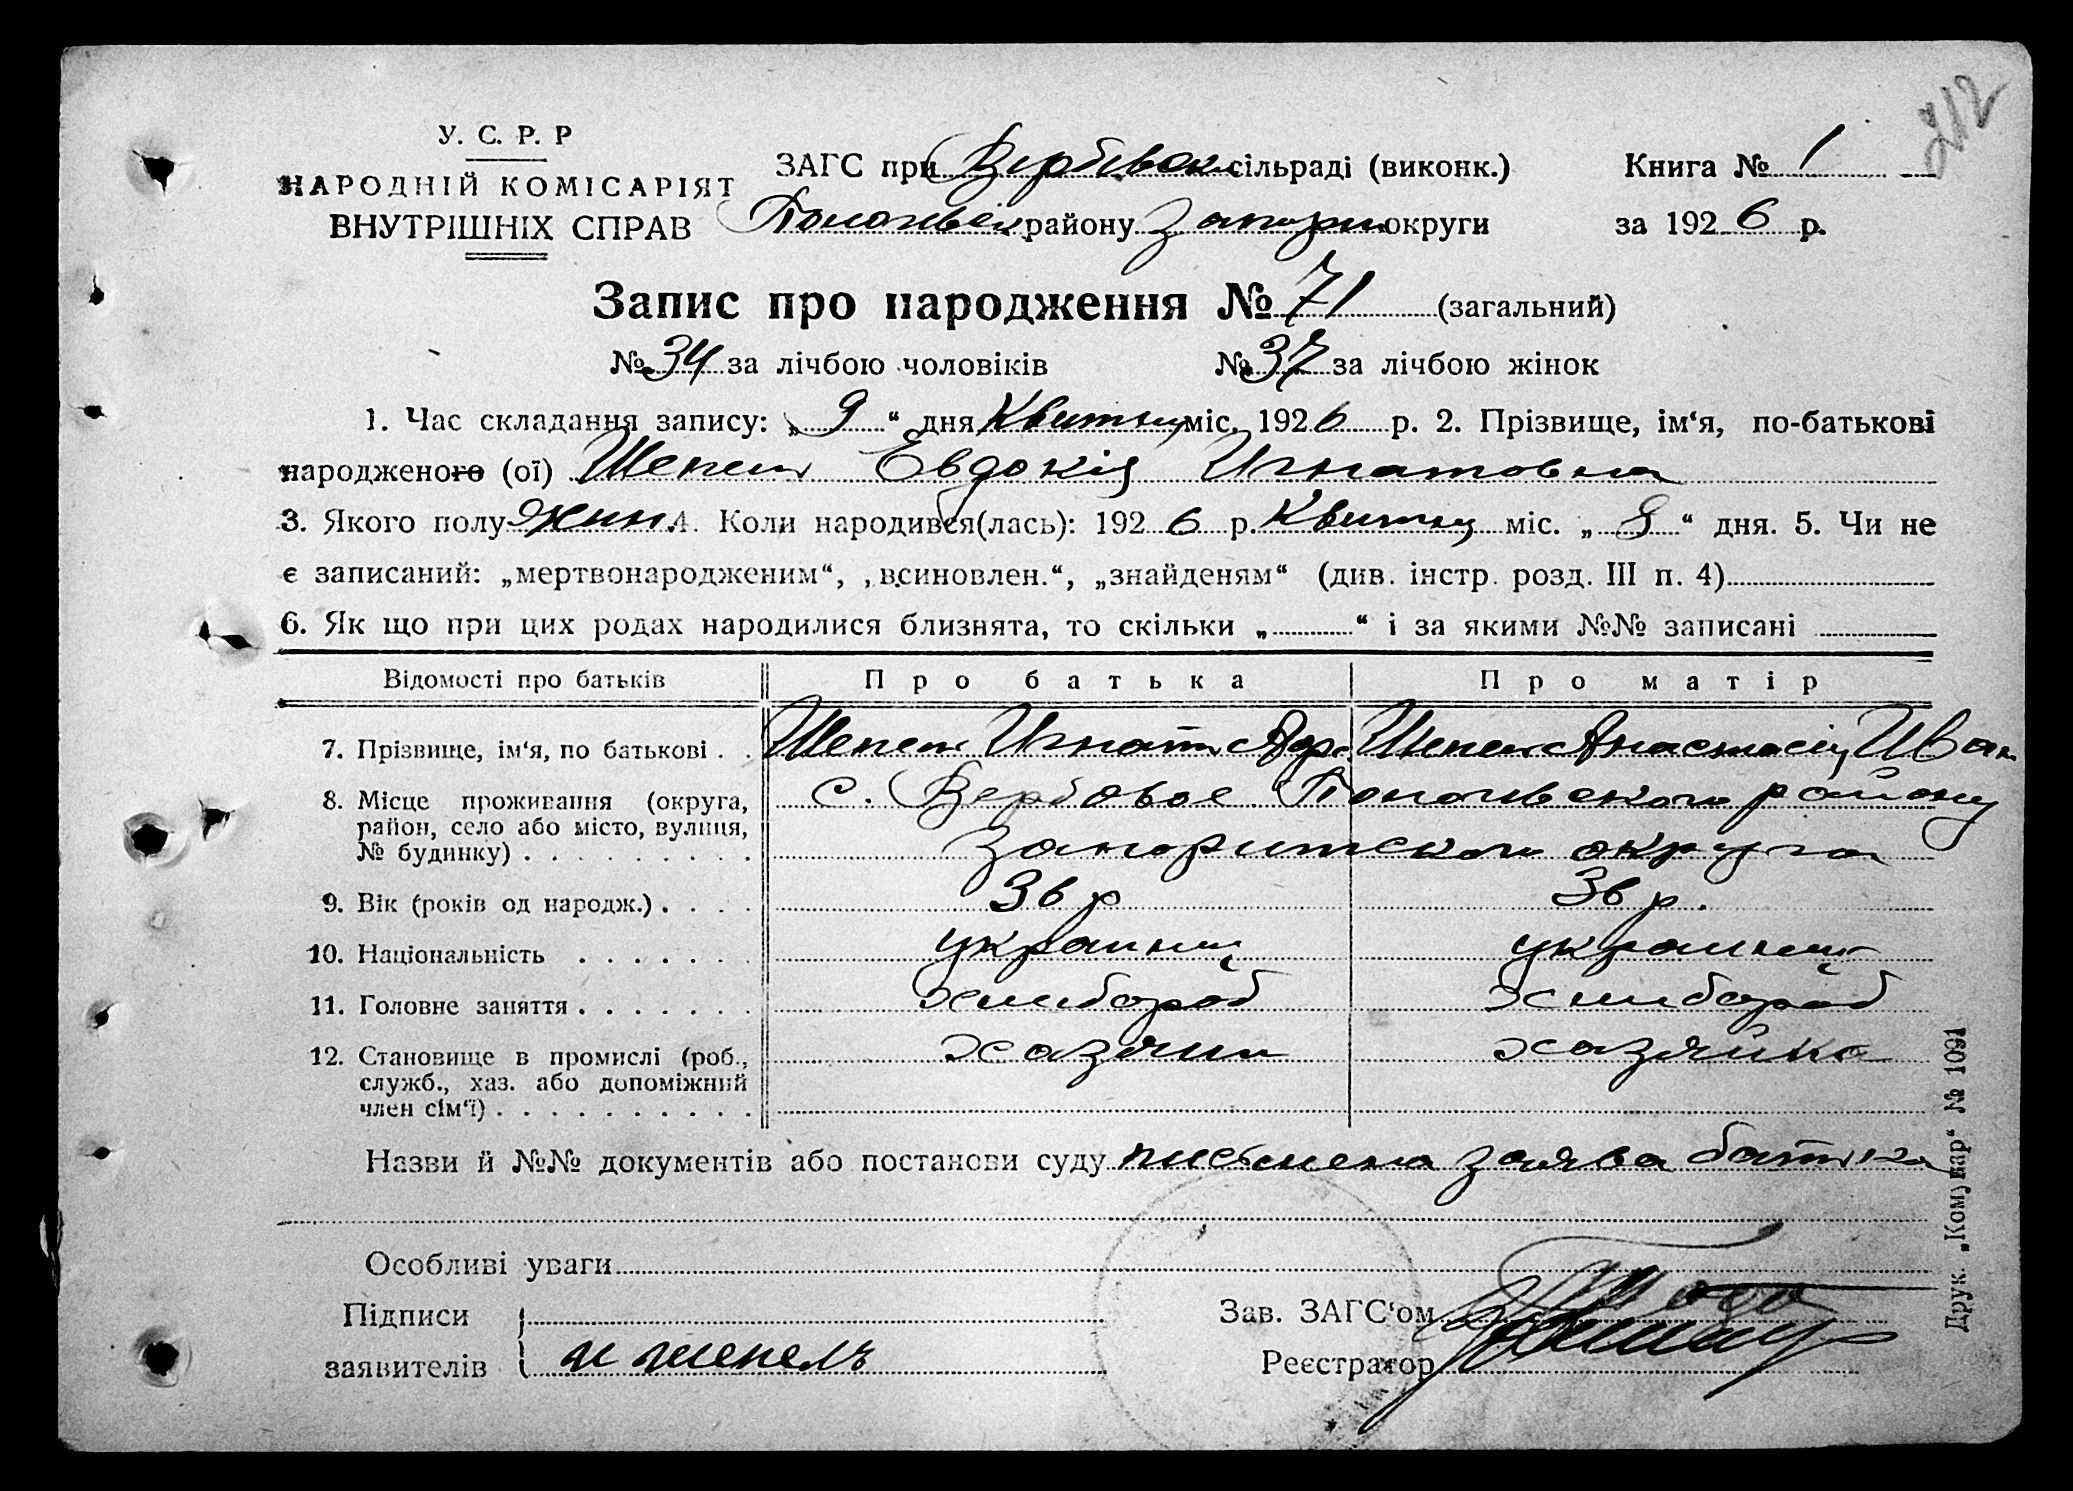 212
У. С. Р. Р
НАРОДНІЙ КОМІСАРІЯТ
ВНУТРІШНІХ СПРАВ
ЗАГС при сільраді (виконк.) Книга № 1
району округи за 1926 р.
Запис про народження № 71 (загальний)
№ 34 за лічбою чоловіків № 37 за лічбою жінок
1. Час складання запису: „9“ дня Квитня міс. 1926 р. 2. Прізвище, ім‘я, по-батькові
народженого (ої) Шепель Евдокія Игнатовна
3. Якого полу жин 4. Коли народився(лась): 1926 р. Квитня міс. „ “ дня. 5. Чи не
є записаний: „мертвонародженим“, „всиновлен.“, „знайденям“ (див. інстр. розд. III п. 4)
6. Як що при цих родах народилися близнята, то скільки „ “ і за якими №№ записані
Відомості про батьків Про батька Про матір
7. Прізвище, ім‘я, по батькові . . Шепель Игнат Шепель Анастасія Иван
8. Місце проживання (округа, с. Вербовое району
район, село або місто, вулиця,
№ будинку) . . . . . . . . . округа
9. Вік (років од народж.) . . . . 36 р 36 р.
10. Національність . . . . . . . украин украин
11. Головне заняття . . . . . . . хлибороб хлибороб
12. Становище в промислі (роб., хазяин хазяйка
служб., хаз. або допоміжний
член сім‘ї) . . . . . . . . . .
Назви й №№ документів або постанови суду письмена заява батька
Особливі уваги
Підписи Зав. ЗАГС‘ом
заявителів и шепель Реєстратор
Друк. „Комунар“ № 1091